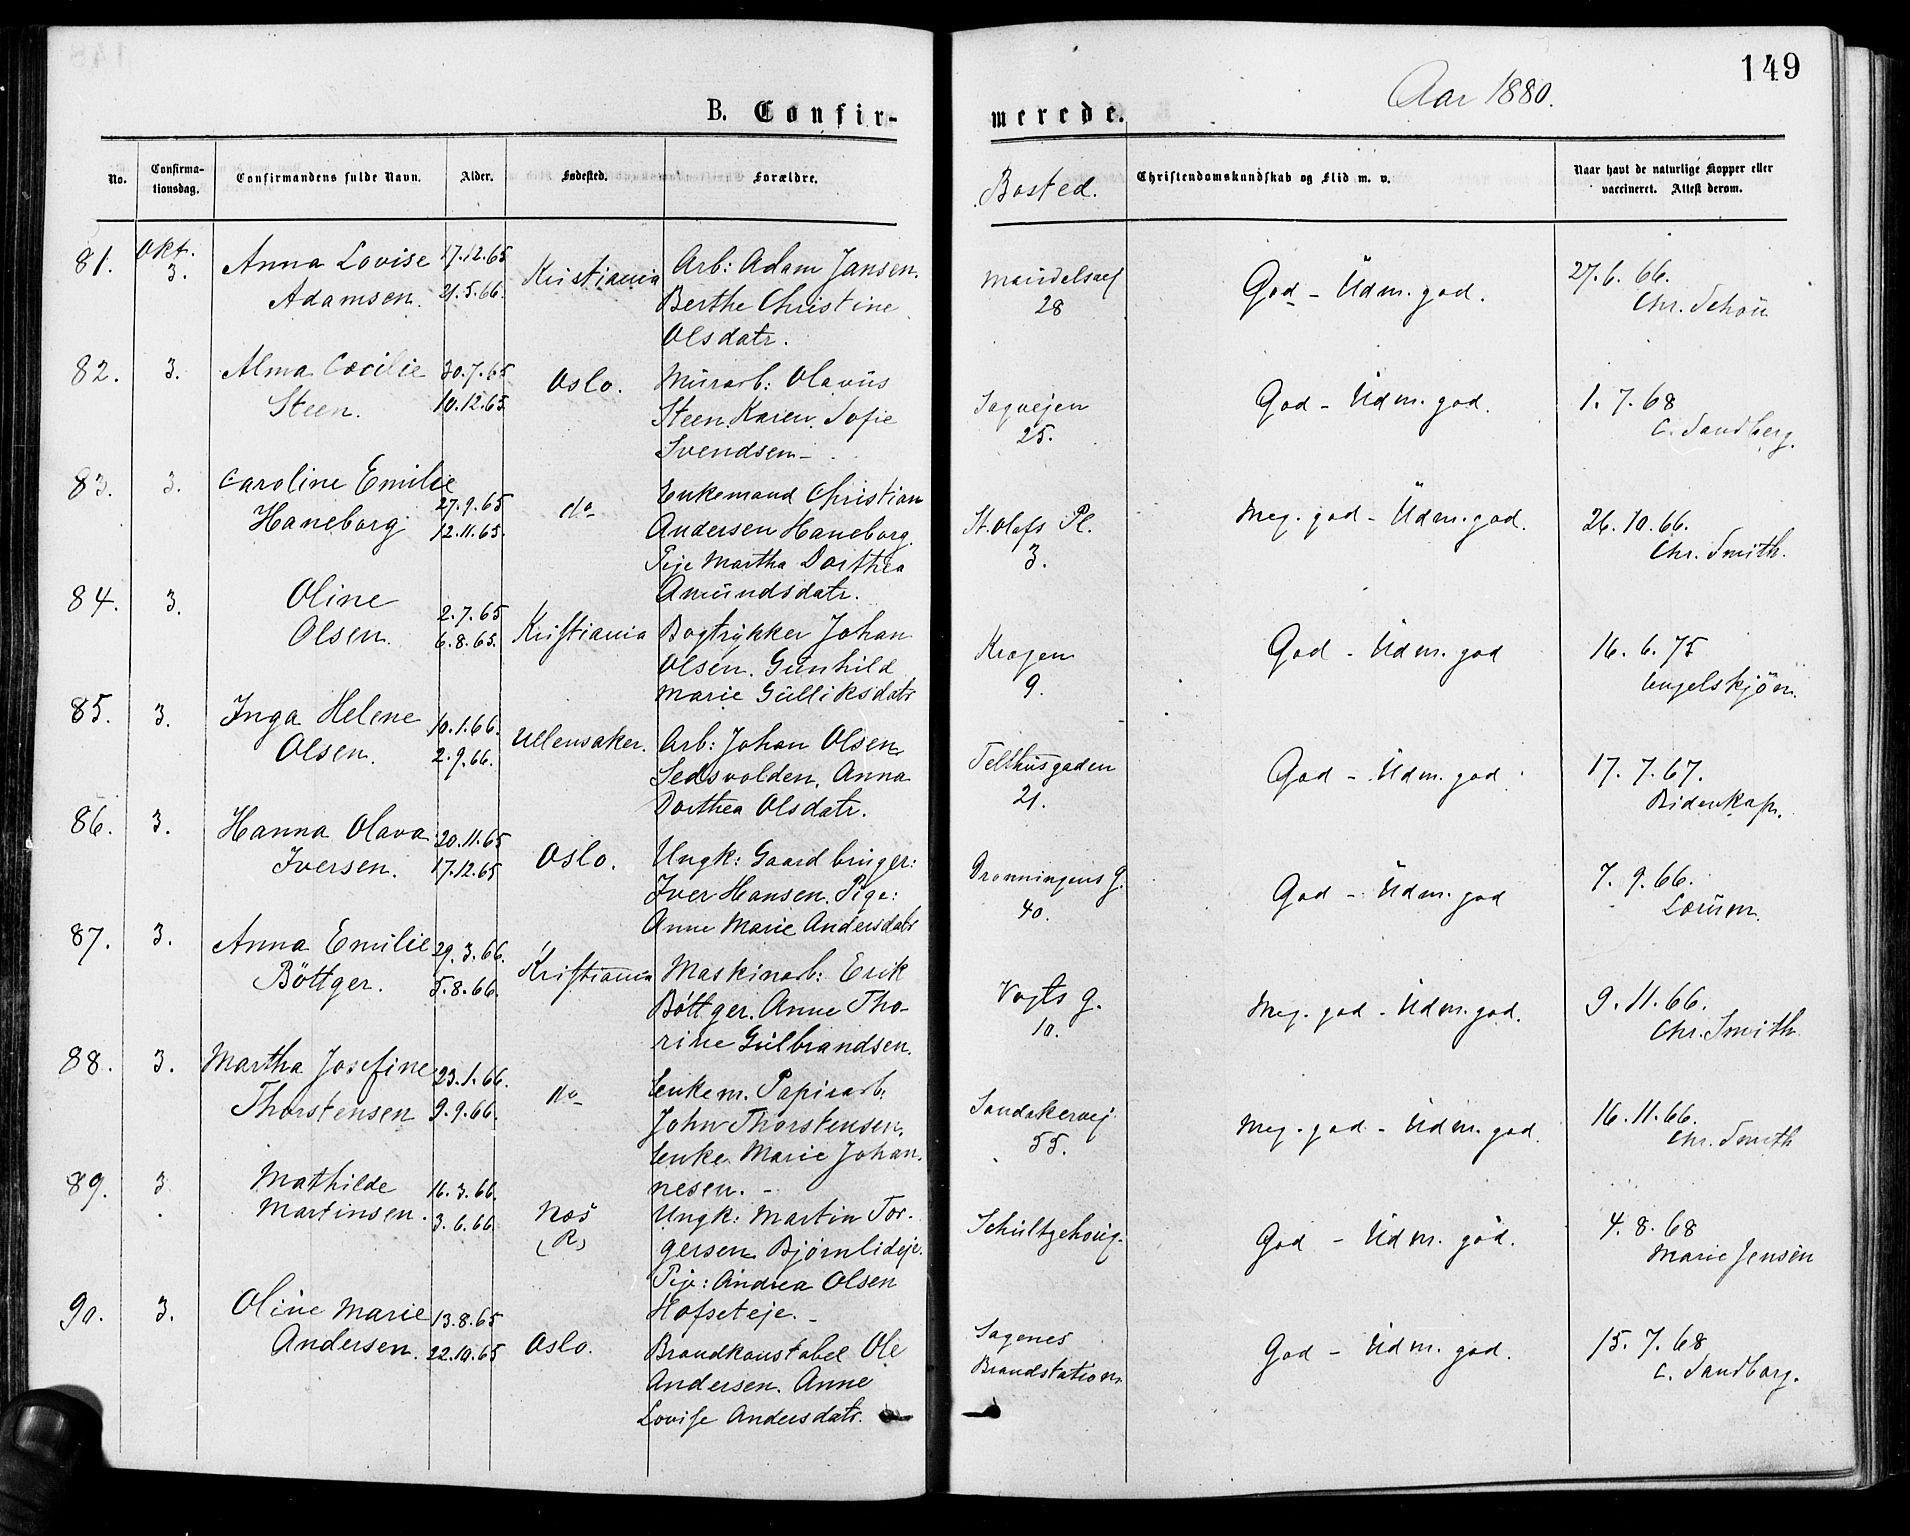 149
Aar 1880.
B. Confir-
merede.
No.
Confirma-
tionsdag.
Confirmandens fulde Navn.
Alder.
Fødested.
Forældre.
Bosted.
Christendomskundskab og Flid m. v.
Naar havt de naturlige Kopper eller
vaccineret. Attest derom.
81.
Okt.
3.
Anna Lovise
Adamsen.
17.12.65
21.5.66.
Kristiania
Arb: Adam Jansen.
Berthe Christine
Olsdatr.
28
God - Udm. god.
27.6.66.
Chr. Schou
82.
3.
Alma Cæcilie
Steen.
30.7.65
10.12.65
Oslo.
Murarb: Olavus
Steen Karen Sofie
Svendsen -
Sagvejen
25.
God - Udm. god.
1.7.68
C. Sandberg.
83.
3.
Caroline Emilie
Haneborg
27.9.65
12.11.65.
do
Enkemand Christian
Andersen Haneborg.
Pige Martha Dorthea
Amundsdatr.
St. Olafs Pl.
3.
Meg. god - Udm. god.
26.10.66.
Chr. Smith.
84.
3.
Oline
Olsen.
2.7.65
6.8.65.
Kristiania
Bogtrykker Johan
Olsen. Gunhild
Marie Gulliksdatr
Krogen
9.
God - Udm. god
16.6.75
Engelskjøn.
85.
3.
Inga Helene
Olsen.
10.1.66.
2.9.66.
Ullensaker.
Arb: Johan Olsen
Sedsvolden. Anna
Dorthea Olsdatr.
Telthusgaden
21.
God - Udm. god
17.7.67.
Bidenkap.
86.
3.
Hanna Olava
Iversen.
20.11.65
17.12.65
Oslo.
Ungk: Gaardbruger:
Iver Hansen. Pige:
Anne Marie Andersdatr
Dronningens G.
40.
God - Udm. god
7.9.66.
Lærum.
87.
3.
Anna Emilie
Böttger.
29.3.66.
5.8.66.
Kristiania
Maskinarb: Erik
Böttger. Anne Tho-
rine Gulbrandsen.
Vogts G.
10.
Meg. god - Udm. god.
9.11.66.
Chr. Smith
88.
3.
Martha Josefine
Thorstensen
23.1.66.
9.9.66.
do
Enkem. Papirarb.
John Thorstensen.
Enke Marie Johan
nesen. -
Sandakervej
55.
Meg. god - Udm. god.
16.11.66.
Chr. Smith
89.
3
Mathilde
Martinsen.
16.3.66.
3.6.66
Nes
(R)
Ungk: Martin Tor-
gersen Bjørnlideje.
Pige: Andrea Olsen
Hofseteje. -
Schultzehoug.
God - Udm. god.
4.8.68
Marie Jensen
90.
3.
Oline Marie
Andersen.
13.8.65
22.10.65
Oslo.
Brandkonstabel Ole
Andersen. Anne
Lovise Andersdatr.
Sagenes
Brandstation
God - Udm. god.
15.7.68
C. Sandberg.